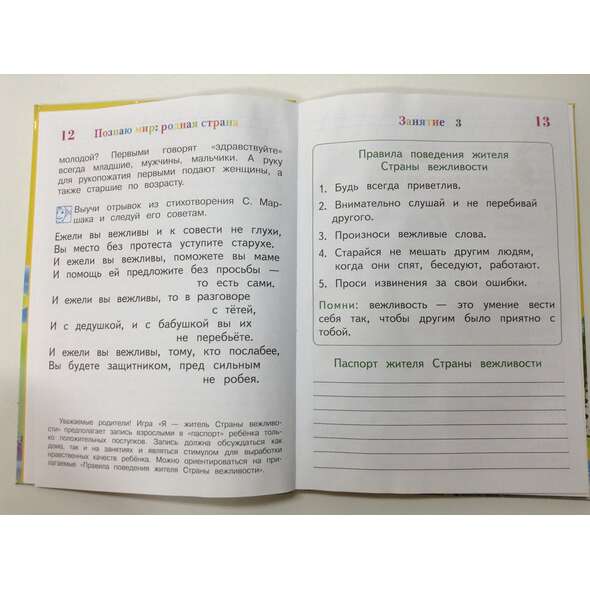 12 Познаю мир: родная страна
молодой? Первыми говорят «здравствуйте»
всегда младшие, мужчины, мальчики. А руку
для рукопожатия первыми подают женщины, а
также старшие по возрасту.
Выучи отрывок из стихотворения С. Мар-
шака и следуй его советам.
Ежели вы вежливы и к совести не глухи,
Вы место без протеста уступите старухе.
И ежели вы вежливы, поможете вы маме
И помощь ей предложите без просьбы —
то есть сами.
И ежели вы вежливы, то в разговоре
с тётей,
И с дедушкой, и с бабушкой вы их
не перебьёте.
И ежели вы вежливы, тому, кто послабее,
Вы будете защитником, пред сильным
не робея.
Уважаемые родители! Игра «Я — житель Страны вежливо-
сти» предполагает запись взрослыми в «паспорт» ребёнка толь-
ко положительных поступков. Запись должна обсуждаться как
дома, так и на занятиях и являться стимулом для выработки
нравственных качеств ребёнка. Можно ориентироваться на при-
лагаемые «Правила поведения жителя Страны вежливости».
Занятие 3 13
Правила поведения жителя
Страны вежливости
1. Будь всегда приветлив.
2. Внимательно слушай и не перебивай
другого.
3. Произноси вежливые слова.
4. Старайся не мешать другим людям,
когда они спят, беседуют, работают.
5. Проси извинения за свои ошибки.
Помни: вежливость — это умение вести
себя так, чтобы другим было приятно с
тобой.
Паспорт жителя Страны вежливости